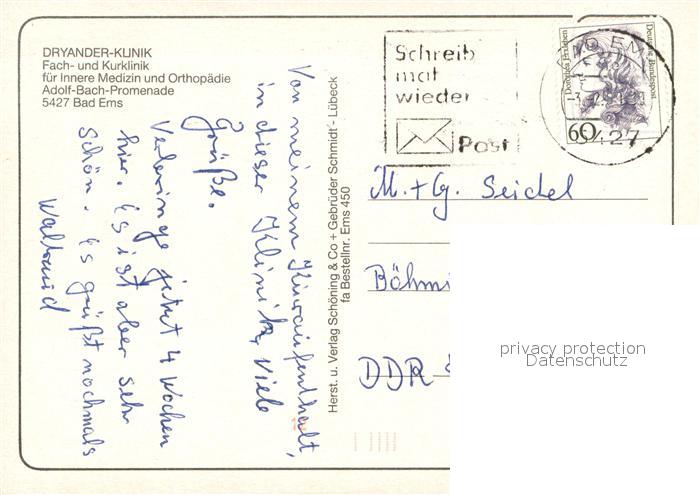 DRYANDER-KLINIK
Fach- und Kurklinik
für Innere Medizin und Orthopädie
Adolf-Bach-Promenade
5427 Bad Ems
Von meinem Kuraufenthalt,
in dieser Klinik, viele
Grüße.
Verbringe jetzt 4 Wochen
hier. Es ist aber sehr
schön. Es grüßt nochmals
Waltraud
Herst. u. Verlag Schöning & Co + Gebrüder Schmidt - Lübeck
fa Bestellnr. Ems 450
Schreib
mal
wieder
Post
BAD EMS
5427
Dorothea Erxleben
Deutsche Bundespost
60
M. + G. Seidel
Böhmi
DDR
privacy protection
Datenschutz